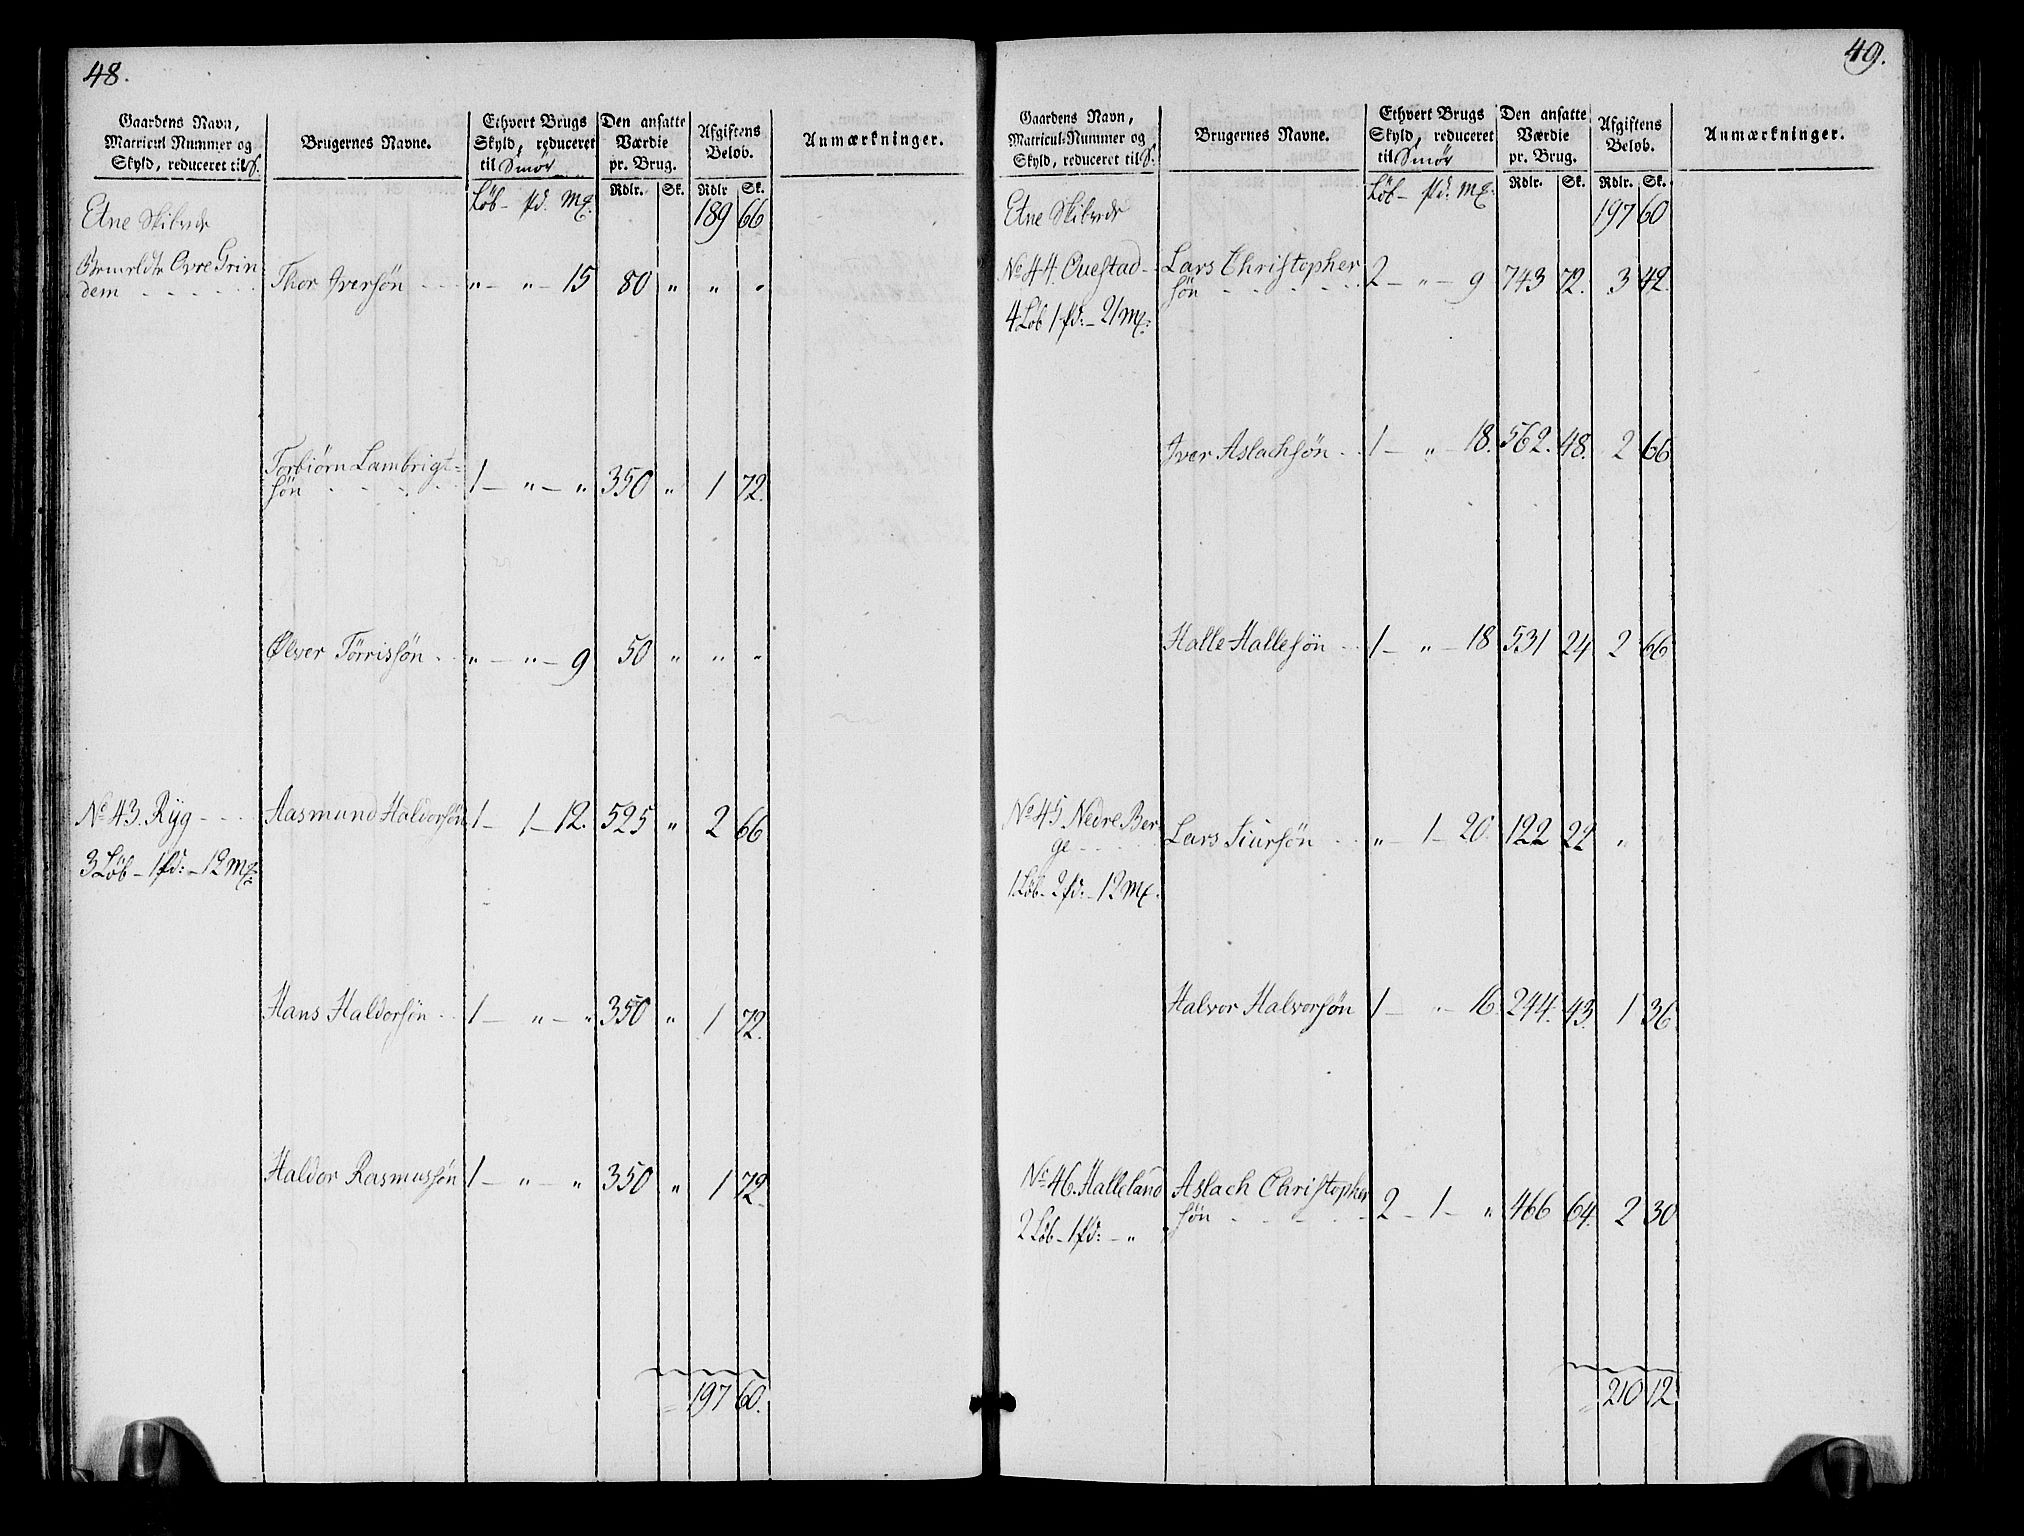 48.
Gaardens Navn, Matricul Nummer og Skyld, reduceret til S. | Brugernes Navne. | Ethvert Brugs Skyld, reduceret til Smør | Den ansatte Værdie pr. Brug. | Afgiftens Beløb. | Anmærkninger.
Løb - pd. Mk. | Rdlr. | Sk. | Rdlr | Sk.
Etne Skibrede | 189 66
Øvre Grin
dem - - - | Thor Iversøn - - | „ - „ - 15 | 80 | „ | „ | „
Torbiørn Lambrigt=
søn - - - | 1 - „ - „ | 350 | „ | 1 | 72.
Ølver Tørrissøn - - | „ - „ - 9 | 50 | „ | „ | „
No 43. Ryg - - - | Aasmund Haldorsøn | 1 - 1 - 12. | 525 | „ | 2 | 66
3 Løb - 1 pd: - 12 Mk:
Hans Haldorsøn - - | 1 - „ - „ | 350 | „ | 1 | 72.
Haldor Rasmussøn | 1 - „ - „ | 350 | „ | 1 | 72.
197 60.
49.
Gaardens Navn, Matricul-Nummer og Skyld, reduceret til S. | Brugernes Navne. | Ethvert Brugs Skyld, reduceret til Smør | Den ansatte Værdie pr. Brug. | Afgiftens Beløb. | Anmærkninger.
Løb - pd. Mk. | Rdlr. | Sk. | Rdlr. | Sk.
Etne Skibrede | 197 60
No 44. Ouestad - | Lars Christopher
søn - - - | 2 - „ - 9 | 743 | 72. | 3 | 42.
4 Løb 1 pd: - 21 Mk:
Iver Aslachsøn - - | 1 - „ - 18. | 562. | 48. | 2 | 66.
Halle Hallesøn - - | 1 - „ - 18 | 531 | 24 | 2 | 66
No 45. Nedre Ber-
ge - - - | Lars Siursøn - - | „ - 1 - 20. | 122 | 22 | „ | „
1 Løb - 2 pd: - 12 Mk.
Halvor Halvorsøn | 1 - „ - 16. | 244. | 43. | 1 | 36
No 46. Halleland | Aslach Christopher
søn - - - | 2 - 1 - „ | 466 | 64. | 2 | 30
2 Løb - 1 pd: - „
210 12.